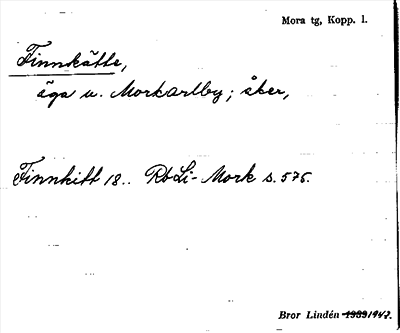 Mora tg, Kopp. l.
Finnkätte,
äga u. Morkarlby; åker,
Finnkitt 18.. RbLi-Mork s. 576.
Bror Lindén 1939 1947.